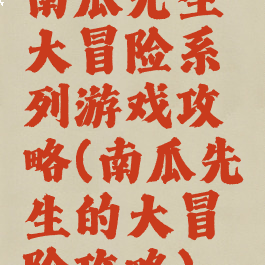 南瓜先生
大冒险系
列游戏攻
略(南瓜先
生的大冒
险攻略)